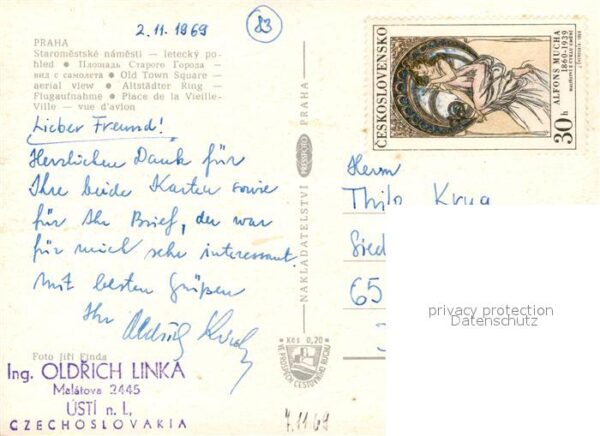 2.11.1969
83
PRAHA
Staroměstské náměstí — letecký po-
hled • Площадь Старого Города —
вид с самолета • Old Town Square —
aerial view • Altstädter Ring —
Flugaufnahme • Place de la Vieille-
Ville — vue d'avion
Lieber Freund!
Herzlichen Dank für
Ihre beide Karten sowie
für Ihr Brief, der war
für mich sehr interessant.
Mit besten Grüßen
Ihr Oldřich
Foto Jiří
Ing. OLDŘICH LINKA
Malátova 2445
ÚSTÍ n. L,
CZECHOSLOVAKIA
NAKLADATELSTVÍ PRESSFOTO PRAHA
Kčs 0,20
VE PROSPĚCH CESTOVNÍHO RUCHU
7.11.69
ČESKOSLOVENSKO
ALFONS MUCHA
1860-1939
30h
Herrn
Thilo Krug
Sied
65
privacy protection
Datenschutz